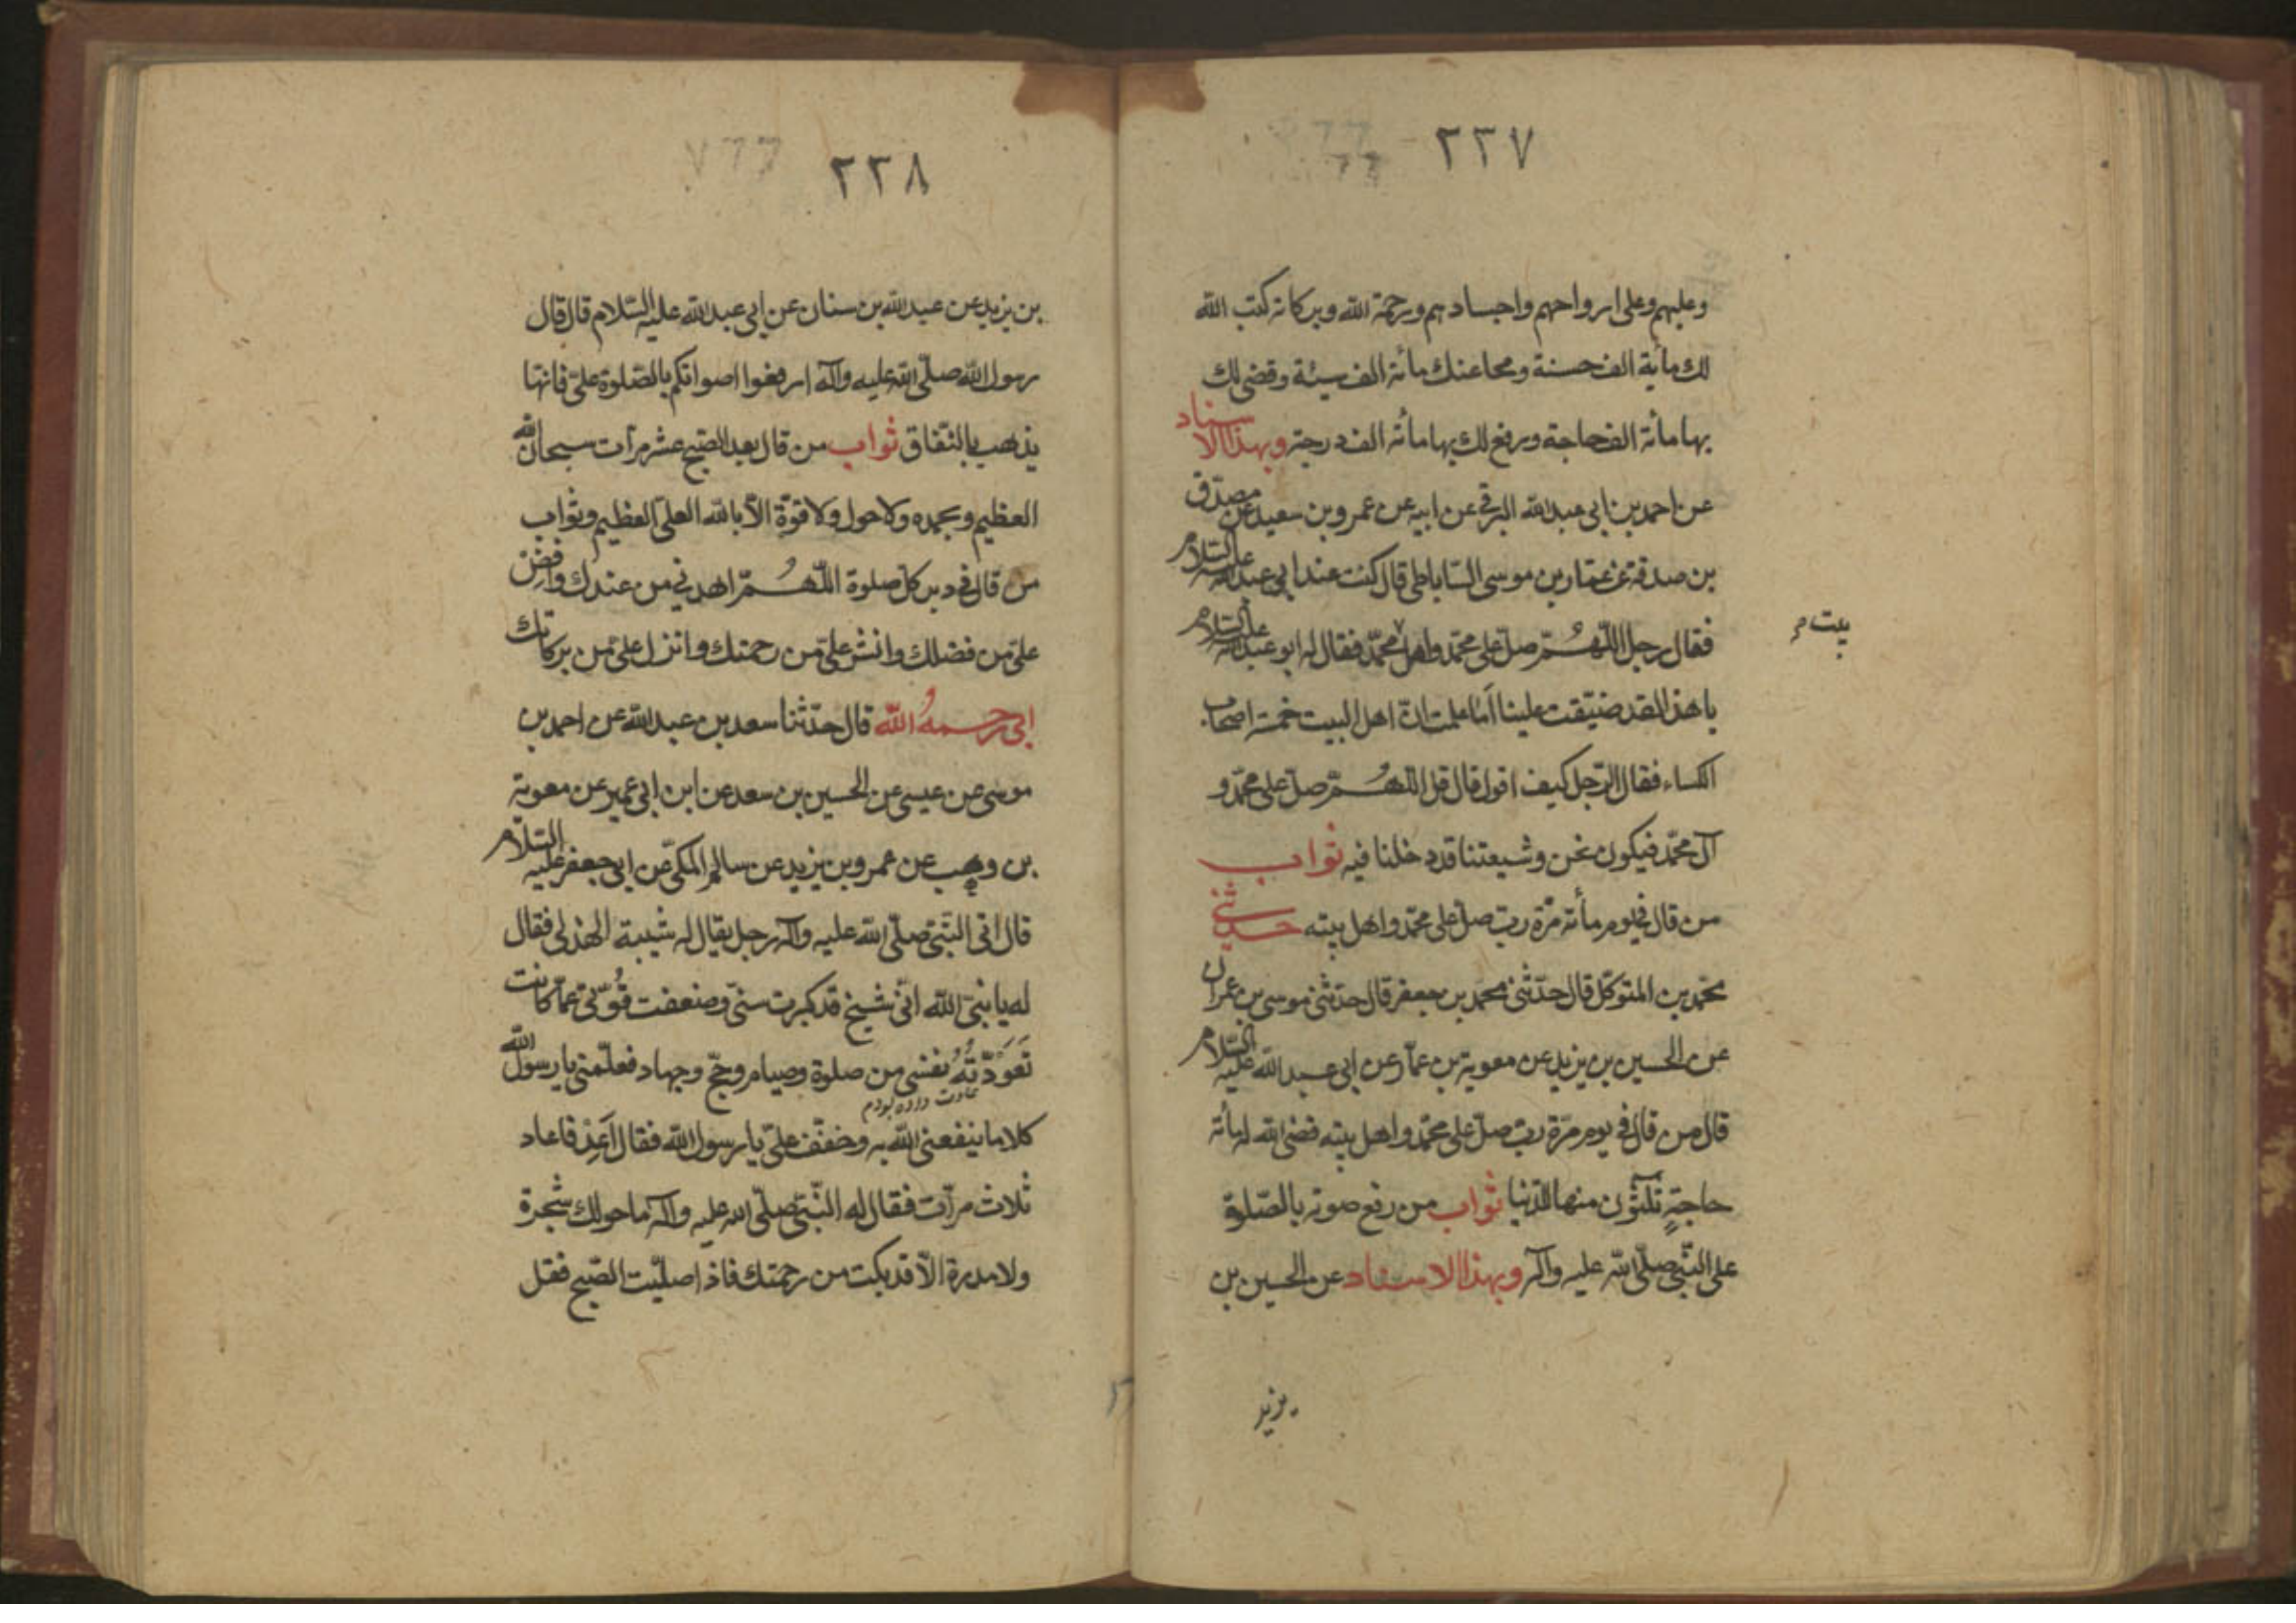 ٢٣٧
وعليهم وعلى ارواحهم واجسادهم ورحمة الله وبركاته كتب الله
لك مأية الف حسنة ومحا عنك مأنة الف سيئة وقضى لك
بها مأنة الف حاجة ورفع لك بها مأنة الف درجة وبهذا الاسناد
عن احمد بن ابى عبدالله البرقى عن ابيه عن عمرو بن سعيد عن مصدّق
بن صدقة عن عمّار بن موسى السّاباطى قال كنت عند ابى عبدالله عليه السّلام
فقال رجل اللّهُمّ صلّ على محمّد واهل محمّد فقال له ابو عبدالله عليه السّلام
بيت م
يا هذا لقد ضيّقت علينا اَمَا علمت انّ اهل البيت خمسة اصحاب
الكساء فقال الرّجل كيف اقول قال قل اللّهُمّ صلّ على محمّد و
آل محمّد فيكون نحن وشيعتنا قد دخلنا فيه ثواب
من قال فى يوم مأنة مرّة ربّ صلّ على محمّد واهل بيته حدثنى
محمّد بن المتوكّل قال حدّثنى محمد بن جعفر قال حدثنى موسى بن عمران
عن الحسين بن يزيد عن معوية بن عمّار عن ابى عبدالله عليه السّلام
قال من قال فى يوم مرّة ربّ صلّ على محمّد واهل بيته قضى الله له مأنة
حاجةٍ ثلثون منها للدّنيا ثواب من رفع صوته بالصّلوة
على النّبىّ صلّى الله عليه وآله وبهذا الاسناد عن الحسين بن
يزيد
٢٣٨
بن يزيد عن عبدالله بن سنان عن ابى عبدالله عليه السّلام قال قال
رسول الله صلّى الله عليه وآله ارفعوا اصواتكم بالصّلوة علىّ فانّها
يذهب بالنّفاق ثواب من قال بعد الصّبح عشر مرّات سبحان الله
العظيم وبحمده ولا حول ولا قوّة الّا بالله العلىّ العظيم وثواب
من قال فى دبر كلّ صلوة اللّهُمّ اهدنى من عندك وافض
علىّ من فضلك وانشر علىّ من رحمتك وانزل علىّ من بركاتك
ابى رحمهُ الله قال حدّثنا سعد بن عبدالله عن احمد بن
موسى عن عيسى عن الحسين بن سعد عن ابن ابى عمير عن معوية
بن وهب عن عمرو بن يزيد عن سالم المكّى عن ابى جعفر عليه السّلام
قال اتى النّبىّ صلّى الله عليه وآله رجل يقال له شيبة الهذلى فقال
له يا نبىّ الله انّى شيخ قد كبرت سنّى وضعفت قُوّتى عمّا كانت
تَعَوّدَتهُ نفسى من صلوة وصيام وحجّ وجهاد فعلّمنى يا رسول الله
عادت داده بودم
كلاما ينفعنى الله به وخفّف علىّ يا رسول الله فقال اَعِدْ فاعاد
ثلاث مرّات فقال له النّبىّ صلّى الله عليه وآله ما حولك شجرة
ولا مدرة الّا قد بكت من رحمتك فاذا صلّيت الصّبح فقل